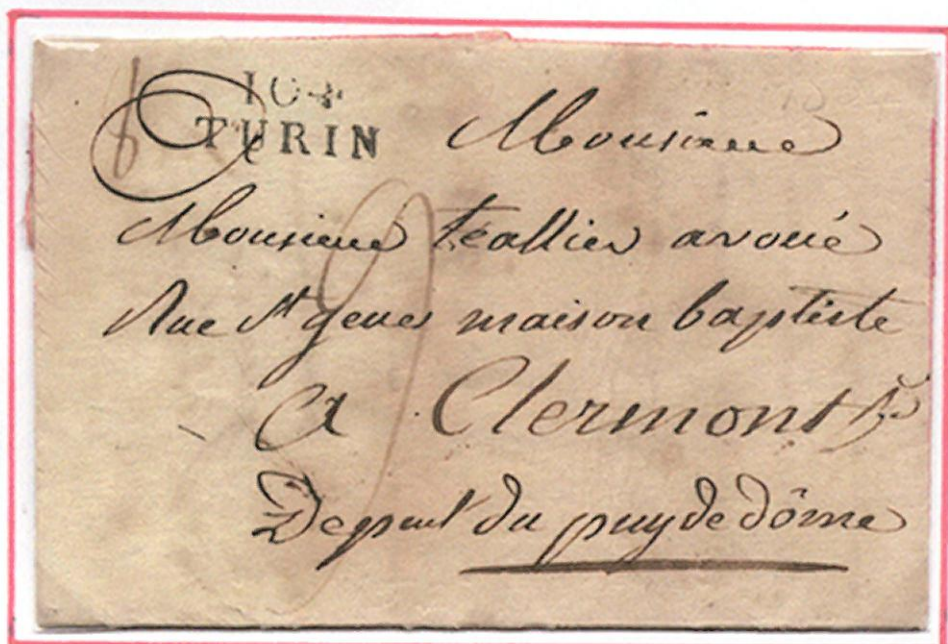 104
TURIN
Monsieur
Monsieur téallier avoué
Rue St genes maison baptiste
A Clermont fd
Depart du puy de dôme
9